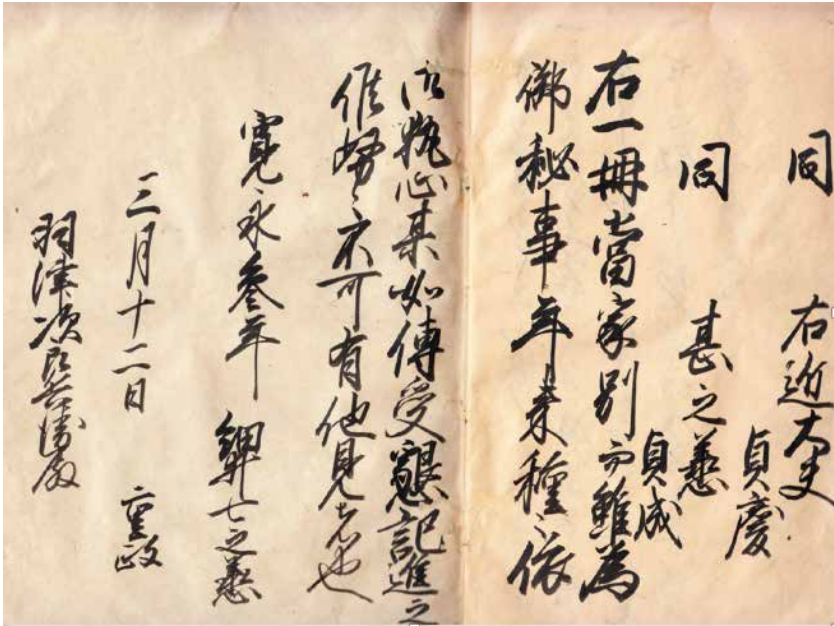 同 右近大夫
貞慶
同 甚之丞
貞成
右一冊當家別而雖為
御秘事年来種〻依
御執心某如傳受懇記進之
候努〻不可有他見者也
寛永参年 七之丞
三月十二日 重政
羽津次郎兵衛殿